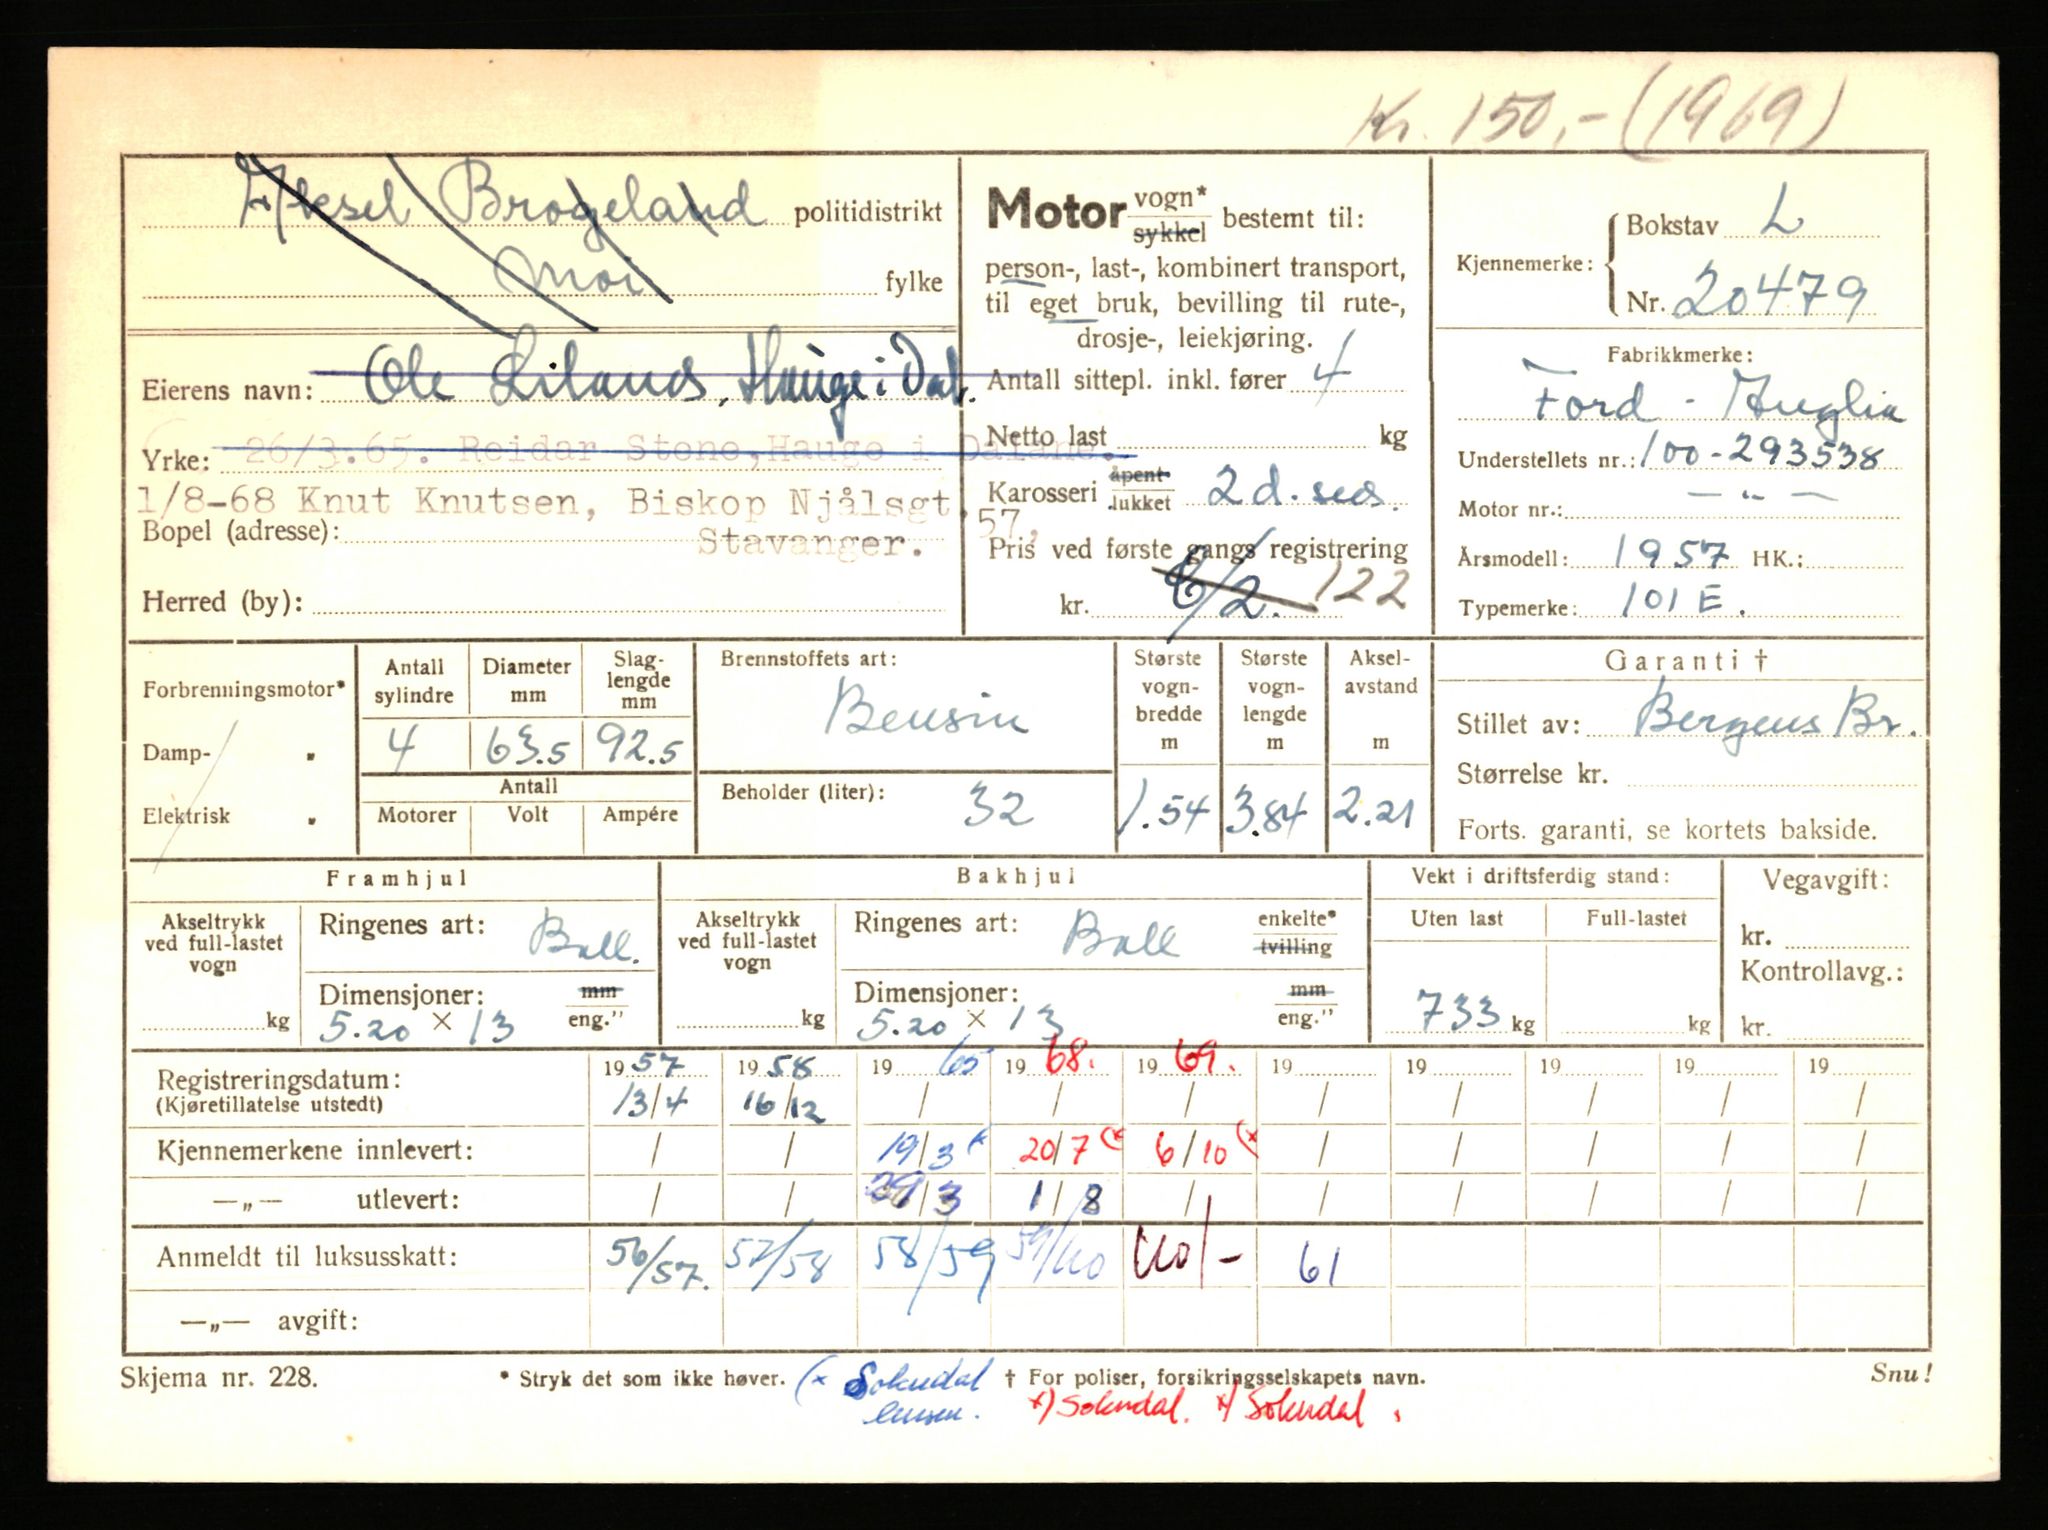 Kr. 150,- (1969)
Aksel Brogeland politidistrikt
Moi fylke
Eierens navn: Ole Liland, Hauge i Dal.
Yrke: 26/3.65. Reidar Stene, Hauge i Dalane.
1/8-68 Knut Knutsen, Biskop Njålsgt. 57,
Bopel (adresse): Stavanger.
Herred (by):
Motor vogn* sykkel bestemt til:
person-, last-, kombinert transport,
til eget bruk, bevilling til rute-,
drosje-, leiekjøring.
Antall sittepl. inkl. fører 4
Netto last kg
Karosseri åpent lukket 2 d. sed.
Pris ved første gangs registrering
kr. 6/2. 122
Kjennemerke: Bokstav L
Nr. 20479
Fabrikkmerke:
Ford - Anglia
Understellets nr.: 100-293538
Motor nr.: — " —
Årsmodell: 1957 HK.:
Typemerke: 101 E.
Forbrenningsmotor*
Damp- "
Elektrisk "
Antall sylindre 4
Diameter mm 63.5
Slag-lengde mm 92.5
Antall
Motorer Volt Ampére
Brennstoffets art:
Bensin
Beholder (liter): 32
Største vogn-bredde m 1.54
Største vogn-lengde m 3.84
Aksel-avstand m 2.21
Garanti †
Stillet av: Bergens Br.
Størrelse kr.
Forts. garanti, se kortets bakside.
Framhjul
Akseltrykk ved full-lastet vogn
kg
Ringenes art: Ball.
Dimensjoner: mm eng."
5.20 × 13
Bakhjul
Akseltrykk ved full-lastet vogn
kg
Ringenes art: Ball enkelte* tvilling
Dimensjoner: mm eng."
5.20 × 13
Vekt i driftsferdig stand:
Uten last Full-lastet
733 kg kg
Vegavgift:
kr.
Kontrollavg.:
kr.
Registreringsdatum: 19 57 19 58 19 65 19 68. 19 69. 19 19 19 19 19
(Kjøretillatelse utstedt) 13/4 16/12 / / / / / / / /
Kjennemerkene innlevert: / / 19/3 (x 20/7 (x 6/10 (x / / / / /
—„— utlevert: / / 29/3 1/8 / / / / / /
Anmeldt til luksusskatt: 56/57. 57/58 58/59 59/60 60/- 61
—„— avgift:
Skjema nr. 228. * Stryk det som ikke høver. (x Sokndal † For poliser, forsikringsselskapets navn. Snu!
lensm. x) Sokndal. x) Sokndal.